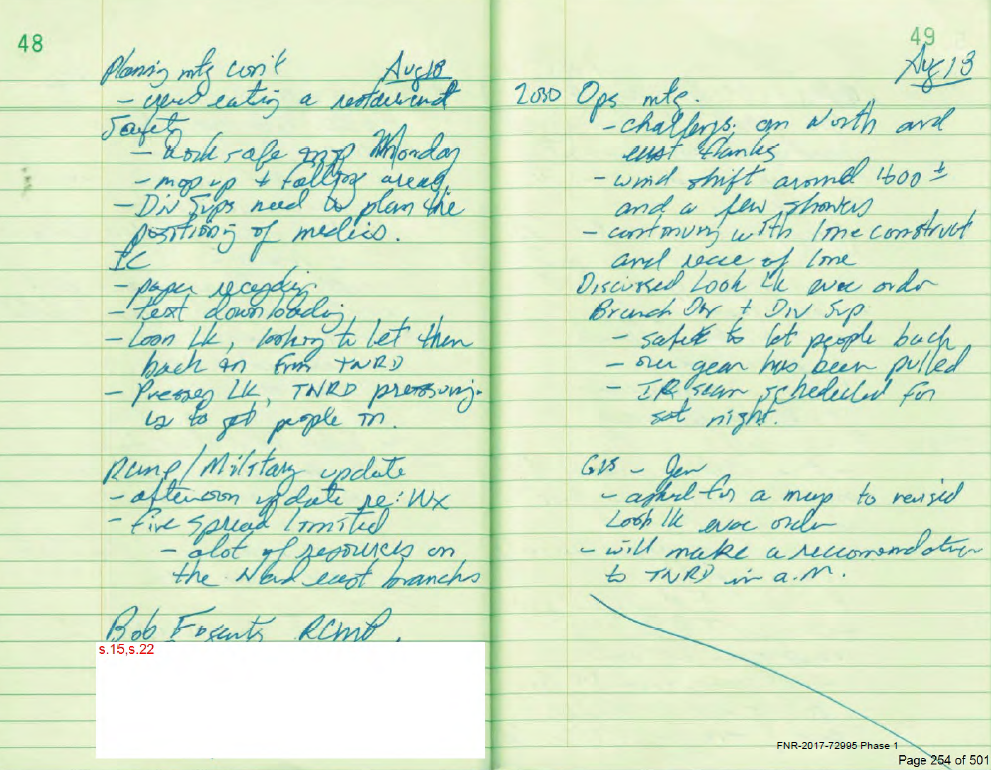 48
Planning mtg con't Aug 18
- crews eating a restaurant
Safety
- work safe Monday
- mop up + falling areas.
- Div Sups need to plan the
positioning of medics.
IC
- paper recording
- text downloading
- Loon Lk, looking to let them
back in from TNRD
- Pressey Lk, TNRD pressuring
us to get people in.
RCMP/Military update
- afternoon update re: Wx
- fire spread limited
- alot of resources on
the N and east branchs
Bob RCMP.
s.15,s.22
49
Aug 18
2030 Ops mtg.
- challengs on North and
east flanks
- wind shift around 1600 ±
and a few showers
- continuing with line construct
and of line
Discussed Loon Lk evac order
Branch Dir + Div Sup
- safe to let people back
- our gear has been pulled
- IR scan scheduled for
sat night.
GIS - Jen
- asked for a map to revised
Loon lk evac order
- will make a reccomendation
to TNRD in a.m.
FNR-2017-72995 Phase 1
Page 254 of 501